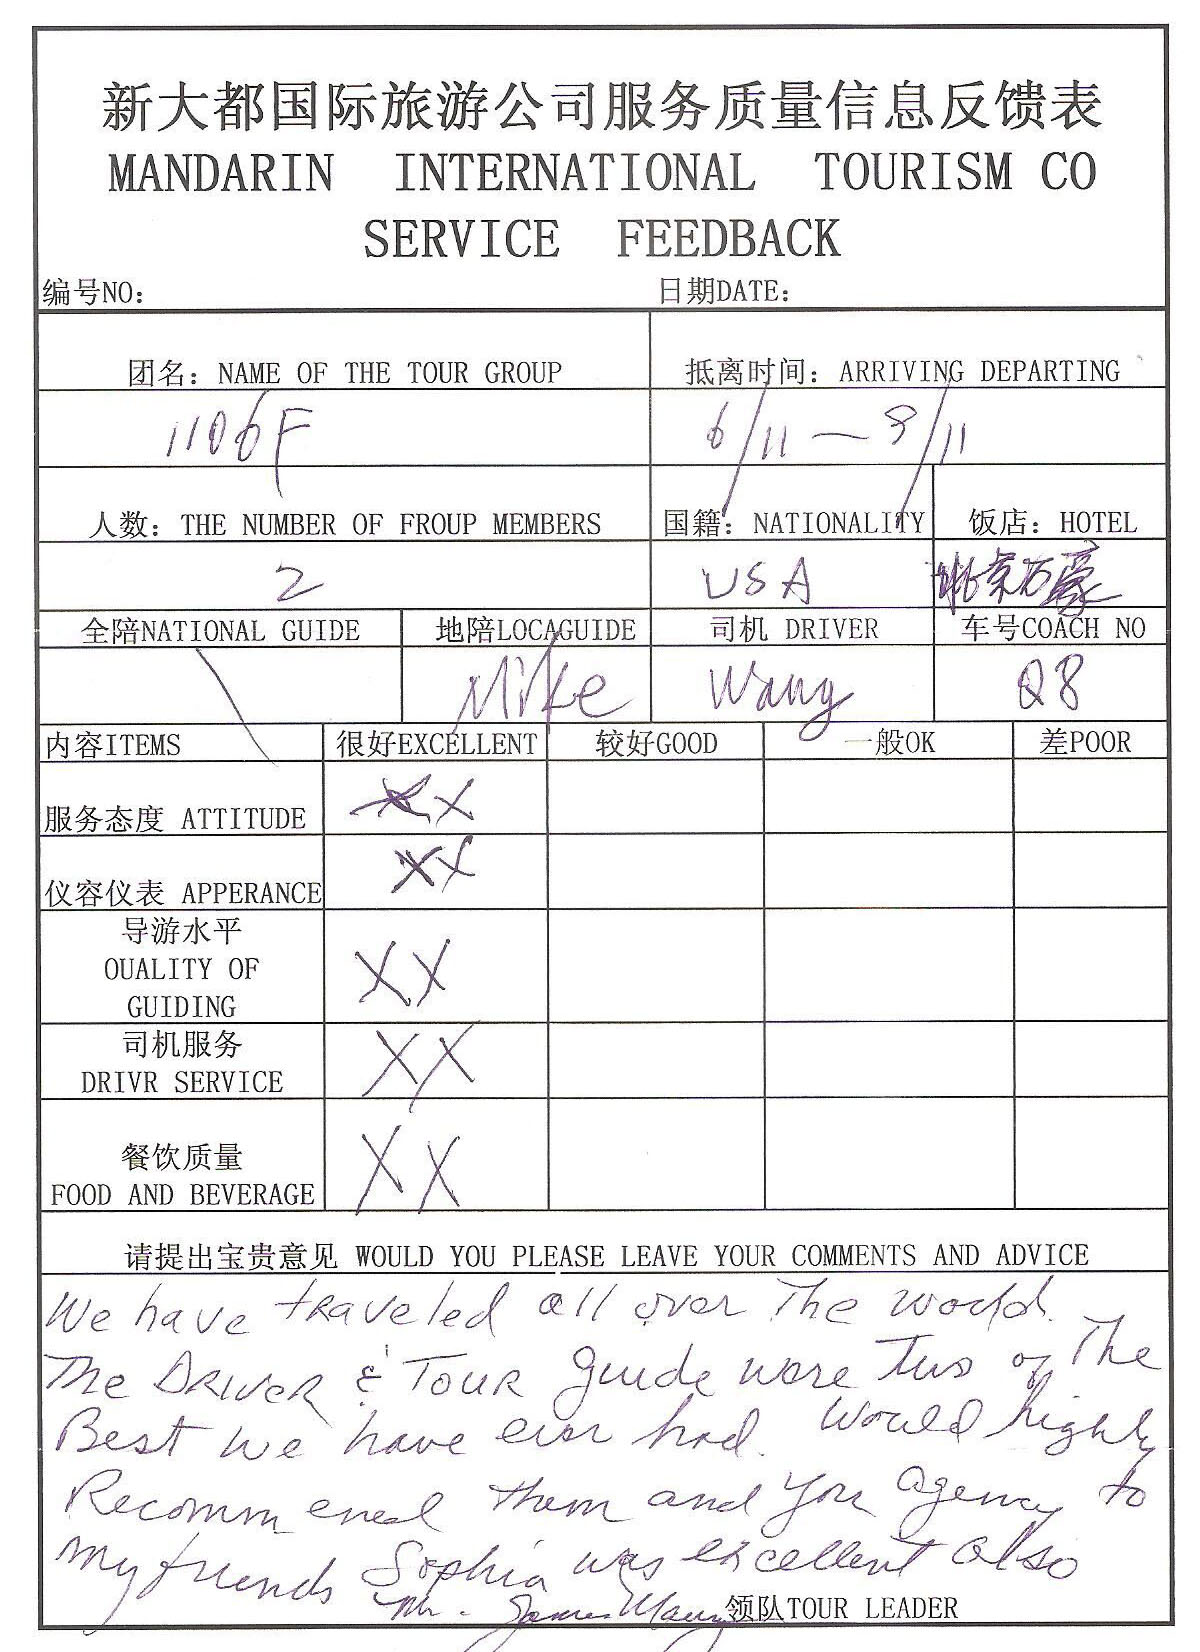 新大都国际旅游公司服务质量信息反馈表
MANDARIN INTERNATIONAL TOURISM CO
SERVICE FEEDBACK
编号NO: 日期DATE:
团名: NAME OF THE TOUR GROUP 抵离时间: ARRIVING DEPARTING
1106F 6/11—9/11
人数: THE NUMBER OF FROUP MEMBERS 国籍: NATIONALITY 饭店: HOTEL
2 USA 北京万豪
全陪NATIONAL GUIDE 地陪LOCAGUIDE 司机 DRIVER 车号COACH NO
Mike Wang Q8
内容ITEMS 很好EXCELLENT 较好GOOD 一般OK 差POOR
服务态度 ATTITUDE XX
仪容仪表 APPERANCE XX
导游水平
OUALITY OF
GUIDING XX
司机服务
DRIVR SERVICE XX
餐饮质量
FOOD AND BEVERAGE XX
请提出宝贵意见 WOULD YOU PLEASE LEAVE YOUR COMMENTS AND ADVICE
We have traveled all over The world.
The DRIVER & TOUR Guide were two of The
Best we have ever had. Would highly
Recommened them and you agency to
my friends Sophia was excellent also
Mr. James 领队TOUR LEADER